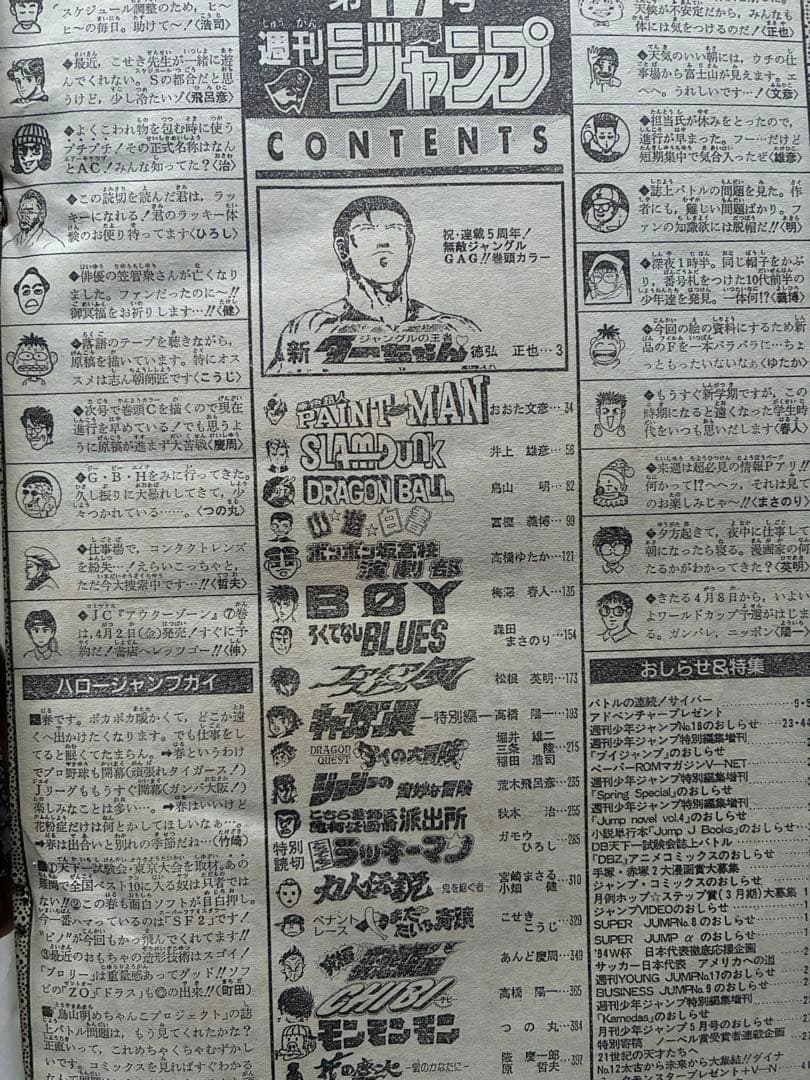 スケジュール調整のため、ヒ〜
ヒ〜の毎日。助けて〜!〈浩司〉
◆最近、こせき先生が一緒に遊
んでくれない。Sの都合だと思
うけど、少し冷たいゾ〈飛呂彦〉
◆よくこわれ物を包む時に使う
プチプチ!その正式名称はなん
とAC!みんな知ってた?〈治〉
◆この読切を読んだ君は、ラッ
キーになれる!君のラッキー体
験のお便り待ってます〈ひろし〉
◆俳優の笠智衆さんが亡くなり
ました。ファンだったのに〜!!
御冥福をお祈りします…!!〈健〉
◆落語のテープを聴きながら、
原稿を描いています。特にオス
スメは志ん朝師匠です〈こうじ〉
◆次号で巻頭Cを描くので現在
進行を早めている!でも思うよ
うに原稿が進まず大苦戦〈慶周〉
◆G・B・Hをみに行ってきた。
久し振りに大暴れしてきて、少
々つかれている……。〈つの丸〉
◆仕事場で、コンタクトレンズ
を紛失…!えらいこっちゃと、
ただ今大捜索中です…!!〈哲夫〉
◆JC『アウターゾーン』⑦巻
は、4月2日(金)発売!すぐに予
約だ!書店へレッツゴー!!〈伸〉
ハロージャンプガイ
■春です。ポカポカ暖かくて、どこか遠
くへ出かけたくなります。でも仕事をし
てると眠くてたまらん。➡春というわけ
でプロ野球も開幕(頑張れタイガース!)
Jリーグももうすぐ開幕(ガンバ大阪!)
楽しみなことは多い…。➡春はいいけど
花粉症だけは何とかしてほしいなぁ…。
➡春は出合いと別れの季節だね…〈竹崎〉
■①天下一試験会・東京大会を取材。あの
難問で全国ベスト10に入る奴は只者では
ない!!②この春も面白ソフトが目白押し。
今一番ハマっているのは「SF2」です!
"ピノ"が今回もかっ飛んでくれてます!!
③最近のおもちゃの造形技術はスゴイ!
「ブロリー」は重量感あってグッド!!ソフ
ビの「ZO」「ドラス」も◎の出来!!〈町田〉
■「鳥山明めちゃんこプロジェクト」の誌
上バトル問題は、もう見てくれたかな?
正直いって、これめちゃくちゃむずかし
いです。コミックスを見ればすぐわかる
週刊
しゅうかん
ジャンプ
CONTENTS
祝・連載5周年!
無敵ジャングル
GAG!!巻頭カラー
新
ジャングルの王者
ターちゃん♡
徳弘 正也…3
PAINT MAN
おおた文彦…34
SLAM DUNK
井上 雄彦…56
DRAGON BALL
鳥山 明…82
幽☆遊☆白書
冨樫 義博…99
ボンボン坂高校
演劇部
高橋ゆたか…121
BØY
梅澤 春人…135
ろくでなしBLUES
森田
まさのり…154
松根 英明…173
キャプテン翼
―特別編―
高橋 陽一…193
DRAGON
QUEST
ダイの大冒険
堀井 雄二
三条 陸
稲田 浩司
…215
ジョジョの
奇妙な冒険
荒木飛呂彦…235
こちら葛飾区
亀有公園前
派出所
秋本 治…255
特別
読切
ラッキーマン
ガモウ
ひろし…285
力人伝説
―鬼を継ぐ者―
宮崎まさる
小畑 健
…310
ペナント
レース
やまだたいちの奇蹟
こせき
こうじ…329
あんど慶周…349
CHIBI
高橋 陽一…365
モンモンモン
つの丸…384
花の慶次
―雲のかなたに―
隆 慶一郎
原 哲夫
…397
天候が不安定だから、みんなも
体には気をつけるのだ!〈正也〉
◆天気のいい朝には、ウチの仕
事場から富士山が見えます。エ
ヘへ。うれしいです…!〈文彦〉
◆担当氏が休みをとったので、
進行が早まった。フー…だけど
短期集中で気合入ったぜ〈雄彦〉
◆誌上バトルの問題を見た。作
者にも、難しい問題ばかり。フ
ァンの知識欲には脱帽だ!!〈明〉
◆深夜1時半。同じ帽子をかぶ
り、番号札をつけた10代前半の
少年達を発見。一体何!?〈義博〉
◆今回の絵の資料にするため新
品のFを一本バラバラに…ちょ
っともったいないなぁ〈ゆたか〉
◆もうすぐ新学期ですが、この
時期になると遠くなった学生時
代をいつも思いだします〈春人〉
◆来週は超必見の情報Pアリ!!
何かって!?へヘッ、それは見て
のお楽しみじゃ〜!!〈まさのり〉
◆夕方起きて、夜中に仕事して
朝になったら寝る。漫画家の何
たるかがわかってきた?〈英明〉
◆きたる4月8日から、いよい
よワールドカップ予選がはじま
る。ガンバレ、ニッポン〈陽一〉
おしらせ&特集
バトルの連続!サイバー
アドベンチャープレゼント
週刊少年ジャンプNo.18のおしらせ……23・44
週刊少年ジャンプ特別編集増刊
「ブイジャンプ」のおしらせ
ペーパーROMマガジンV―NET
週刊少年ジャンプ特別編集増刊
「Spring Special」のおしらせ
週刊少年ジャンプ特別編集増刊
「Jump novel vol.4」のおしらせ
小説単行本「Jump J Books」のおしらせ
DB天下一試験会誌上バトル
「DBZ」アニメコミックスのおしらせ
手塚・赤塚2大漫画賞大募集
ジャンプ・コミックスのおしらせ
月例ホップ☆ステップ賞(3月期)大募集
ジャンプVIDEOのおしらせ
SUPER JUMP No.8のおしらせ
SUPER JUMP αのおしらせ
'94W杯 日本代表徹底応援企画
サッカー日本代表 アメリカへの道
週刊YOUNG JUMP No.17のおしらせ
BUSINESS JUMP No.9のおしらせ
週刊少年ジャンプ特別編集増刊
「Kamedas」のおしらせ
月刊少年ジャンプ5月号のおしらせ
特別寄稿 ノーベル賞受賞者連載企画
21世紀の天才たちへ
No.12太古から未来から大集結!!ダイナ